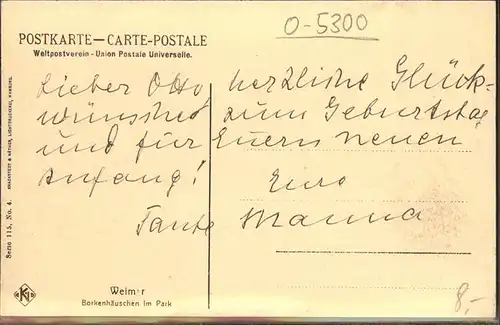 O-5300
POSTKARTE—CARTE-POSTALE
Weltpostverein - Union Postale Universelle.
Lieber Otto, herzliche Glück-
wünsche zum Geburtstag
und für Euern neuen
Anfang! Eure
Tante Manna
Weim r
Borkenhäuschen im Park
Serie 115, No. 4.
8,-